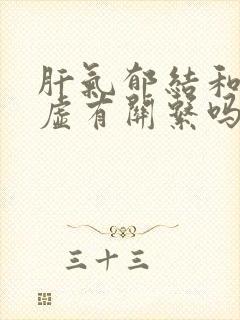 肝氣郁結和
虛有關繫嗎
三十三